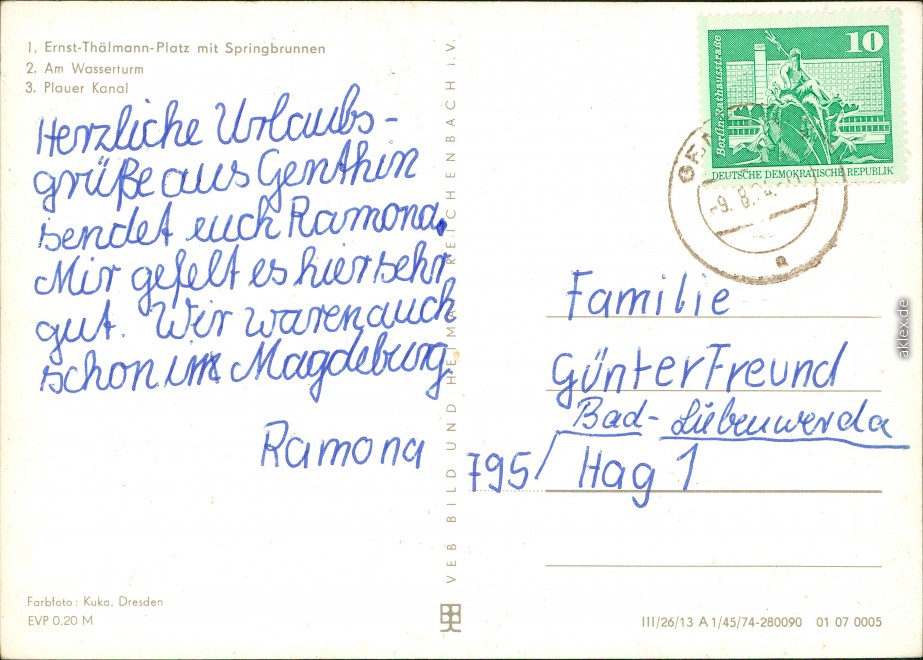 1. Ernst-Thälmann-Platz mit Springbrunnen
2. Am Wasserturm
3. Plauer Kanal
Herzliche Urlaubs-
grüße aus Genthin
sendet euch Ramona.
Mir gefelt es hier sehr
gut. Wir waren auch
schon in Magdeburg.
Ramona
Farbfoto: Kuka, Dresden
EVP 0,20 M
VEB BILD UND HEIMAT REICHENBACH i. V.
10
Berlin-Rathausstraße
DEUTSCHE DEMOKRATISCHE REPUBLIK
Familie
Günter Freund
Bad-Liebenwerda
795/ Hag 1
III/26/13 A 1/45/74-280090 01 07 0005
aklex.de